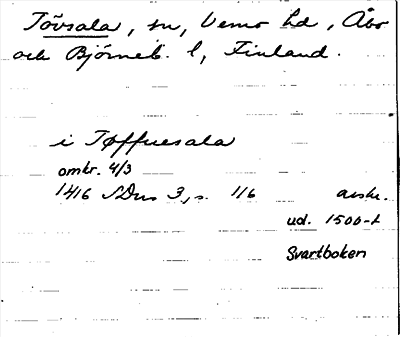 Tövsala, sn, Vemo hd, Åbo
och Björneb. l, Finland.
i Töffuesala
omkr. 4/3
1416 SDns 3, s. 116 avskr.
ud. 1500-t
Svartboken